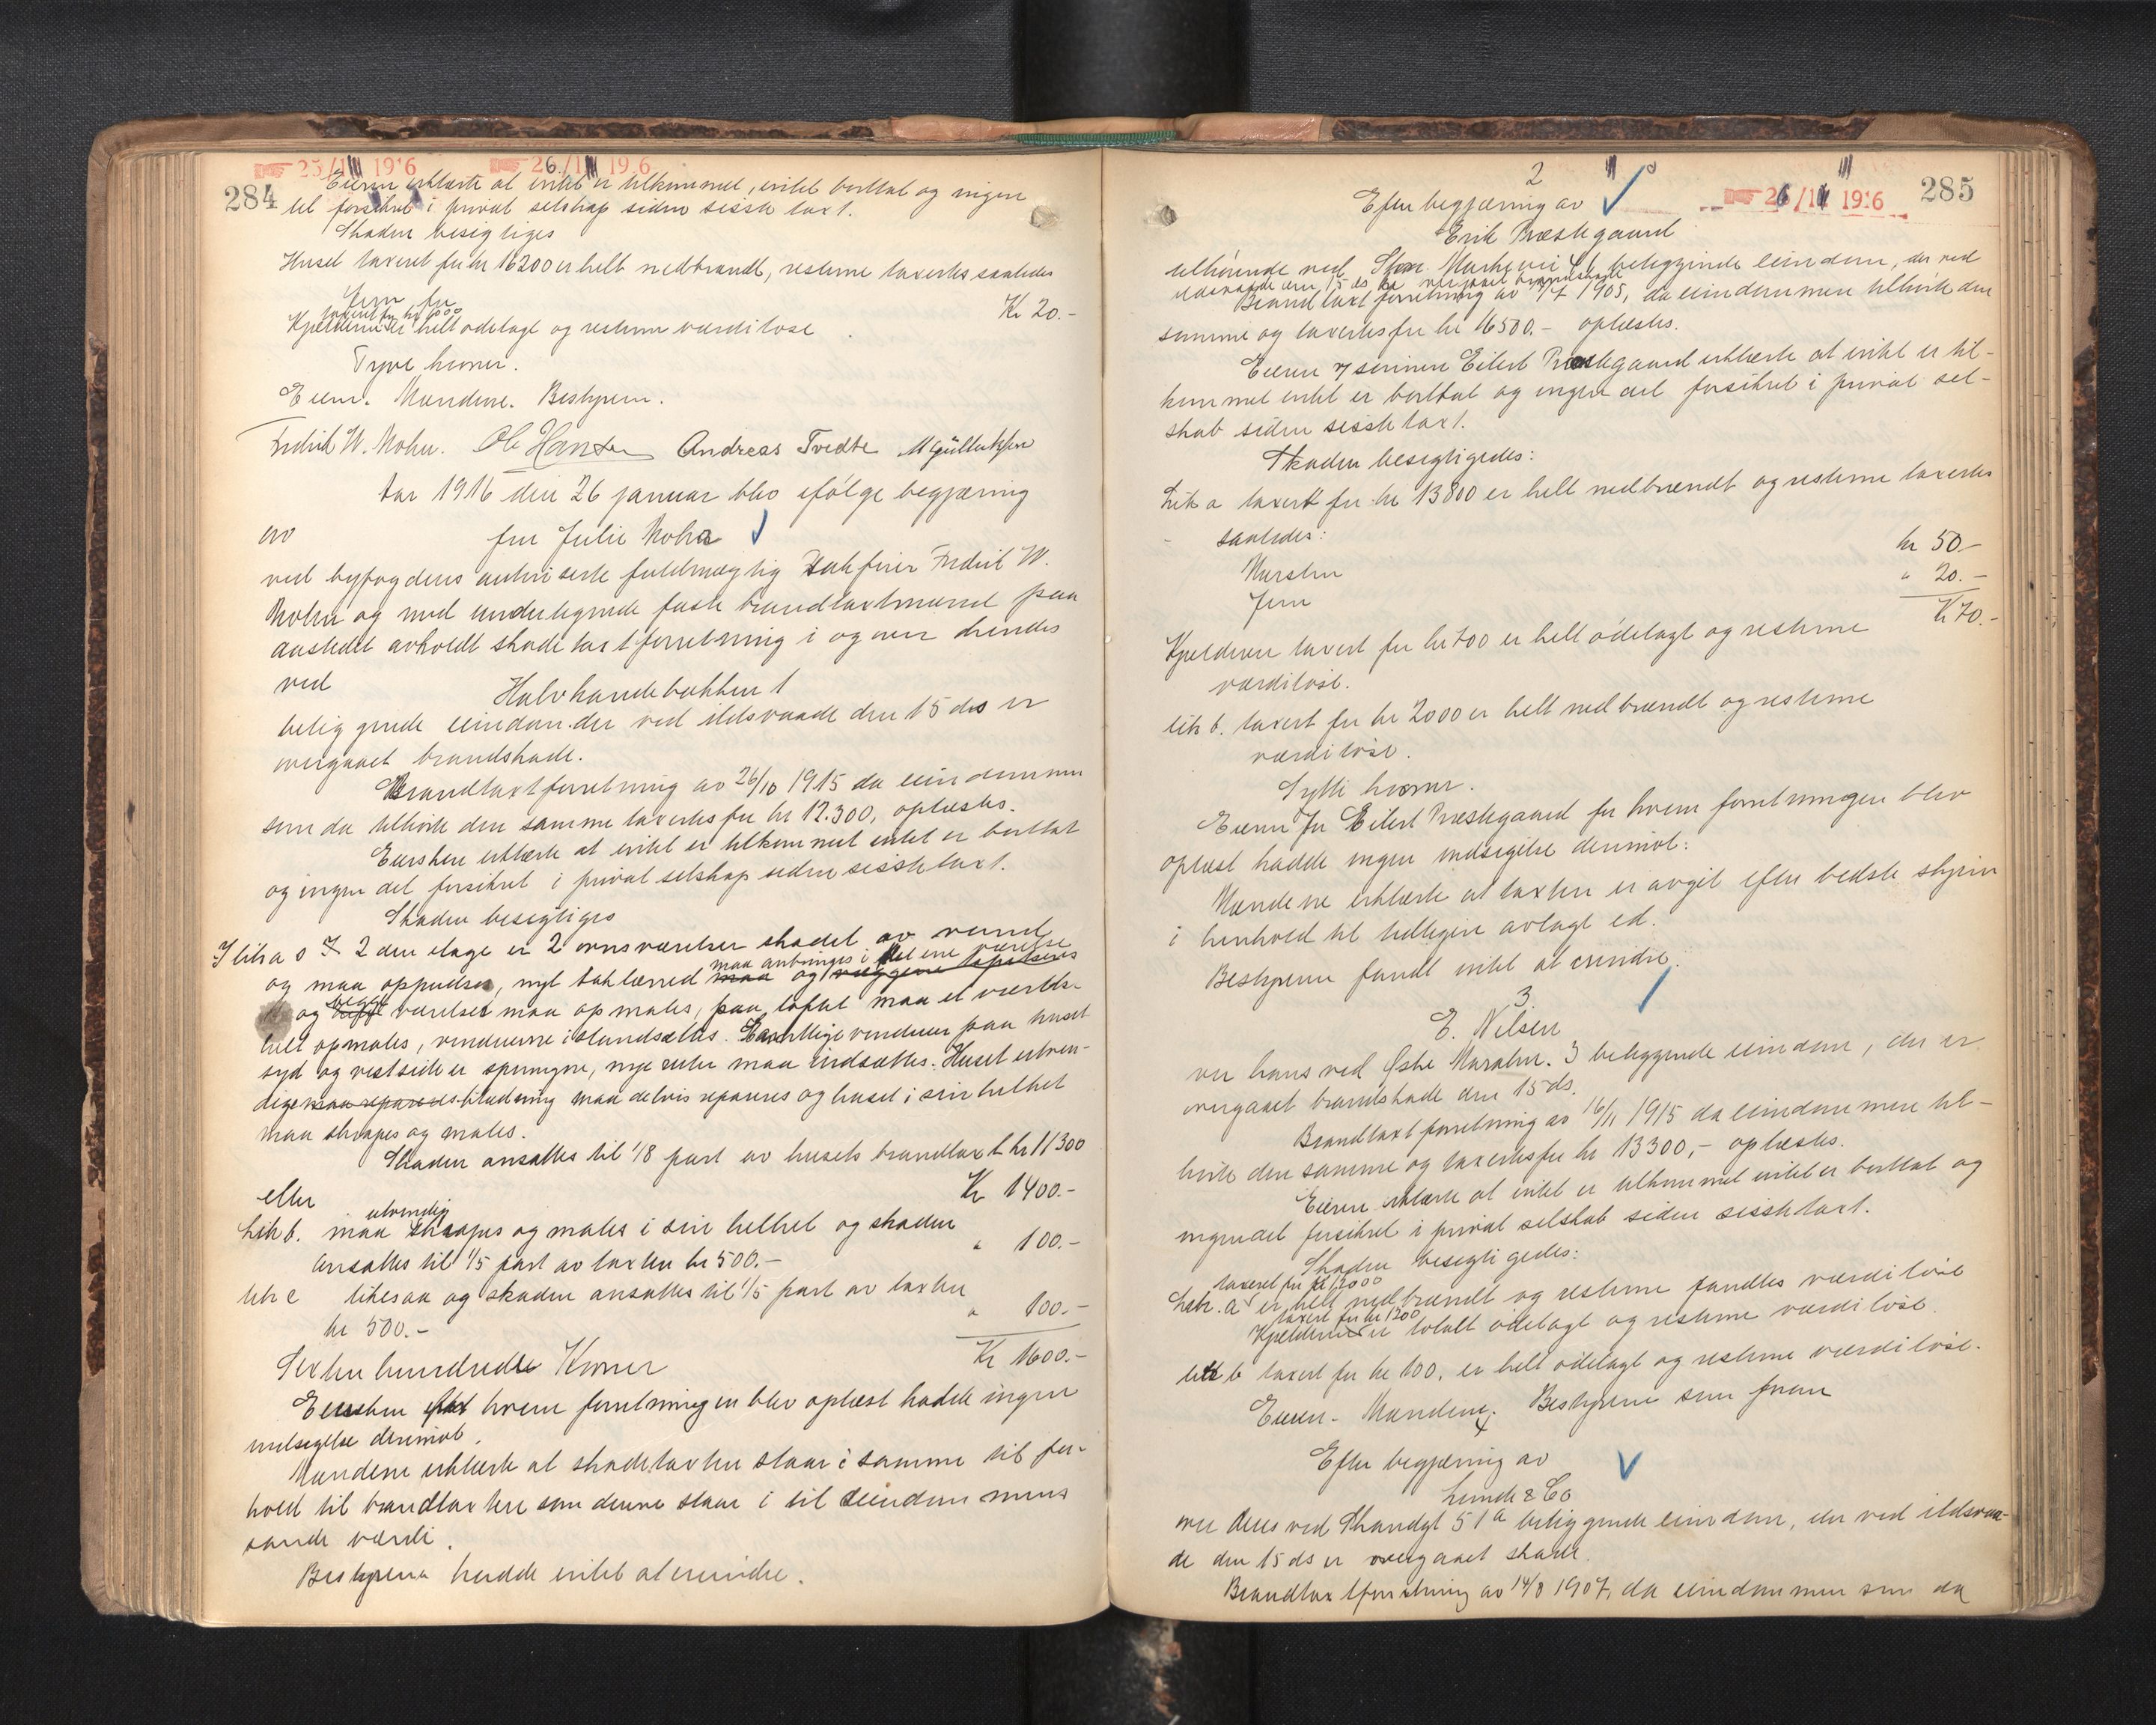 25/1 1916 26/1 1916
284
Eieren erklærte at intet er tilkommet, intet borttat og ingen
del forsikret i privat selskap siden sisste taxt.
Skaden besigtiges
Huset taxeret for kr 16200 er helt nedbrændt, resterne taxertes saaledes
Jern for Kr 20.-
taxeret for kr 1000
Kjælderen er helt ødelagt og resterne værdiløse
Tyve kroner.
Eieren. Mændene. Bestyreren.
Fredrik W. Mohn. Ole Hansen Andreas Tvedte M Gulluksen
Aar 1916 den 26 januar blev ifølge begjæring
av fru Julie Mohn
ved byfogdens autoriserte fuldmægtig Sakfører Fredrik W.
Mohn og med undertegnede faste brandtaxtmænd paa
aastedet avholdt skadetaxtforretning i og over hendes
ved Halvkandebakken 1
beliggende eiendom der ved ildsvaade den 15 ds er
overgaaet brandskade.
Brandtaxtforretning av 26/10 1915 da eiendommen
som da tilhørte den samme taxertes for kr 12.300, oplæstes.
Eiersken erklærte at intet er tilkommet intet er borttat
og ingen del forsikret i privat selskap siden sisste taxt.
Skaden besigtiges
I litra a I 2den etage er 2 ovnsværelser skadet av vand
maa anbringes i det ene værelse
og maa oppudses, nyt taklærred maa og væggene tapetseres
begge
og værelser maa opmales, paa loftet maa et værelse
helt opmales, vinduerne istandsættes. Samtlige vinduer paa huset
syd og vestside er sprungne, nye ruter maa indsættes. Huset utven-
dige maa repareres klædning maa delvis repareres og huset i sin helhet
maa skrapes og males.
Skaden ansattes til 1/8 part av husets brandtaxt kr 11300
eller Kr 1400.-
utvendig
Litr b. maa skrapes og males i sin helhet og skaden
ansattes til 1/5 part av taxten kr 500.- " 100.-
litr c likesaa og skaden ansattes til 1/5 part av taxten
kr 500.- " 100.-
Sexten hundrede Kroner Kr 1600.-
Eiersken for hvem forretningen blev oplæst hadde ingen
indsigelse derimot.
Mændene erklærte at skadetaxten staar i samme til for-
hold til brandtaxten som denne staar i til eiendommens
sande værdi.
Bestyreren hadde intet at erindre.
2
26/1 1916
285
Efter begjæring av
Erik Præstegaard
tilhørende ved Strm. Muskevei beliggende eiendom, der ved
ildsvaade den 15 ds har overgaaet brandskade
Brandtaxtforretning av 7/7 1905, da eiendommen tilhørte den
samme og taxertes for kr 16500.- oplæstes.
Eieren v/ sønnen Eilert Præstegaard erklærte at intet er til-
kommet intet er borttat og ingen del forsikret i privat sel-
skab siden sisste taxt.
Skaden besigtigedes:
Litr a taxert for kr 13800 er helt nedbrændt og resterne taxertes
saaledes:
Mursten kr 50.-
Jern " 20.-
Kr 70.-
Kjælderen taxert for kr 700 er helt ødelagt og resterne
værdiløse.
litr b. taxert for kr 2000 er helt nedbrændt og resterne
værdiløse.
Sytti kroner.
Eieren for Eilert Præstegaard for hvem forretningen blev
oplæst hadde ingen indsigelse derimot.
Mændene erklærte at taxten er avgit efter bedste skjøn
i henhold til tidligere avlagt ed.
Bestyreren fandt intet at erindre.
3.
E. Nilsen
over hans ved Østre Muralm. 3 beliggende eiendom, der er
overgaaet brandskade den 15 ds.
Brandtaxtforretning av 16/11 1915 da eiendommen til-
hørte den samme og taxertes for kr 13300,- oplæstes.
Eieren erklærte at intet er tilkommet intet er borttat og
ingen del forsikret i privat selskab siden sisste taxt.
Skaden besigtigedes:
taxeret for kr 12000
Litr. a er helt nedbrændt og resterne fandtes værdiløse
taxert for kr 1200
Kjælderen er totalt ødelagt og resterne værdiløse.
litr b taxert for kr 100, er helt ødelagt og resterne værdiløse.
Eieren - Mændene. Bestyreren som foran
4
Efter begjæring av
Lunde & Co
over deres ved Strandgt 51a beliggende eiendom, der ved ildsvaa-
de den 15 ds er overgaaet skade.
Brandtaxtforretning av 14/8 1907, da eiendommen som da